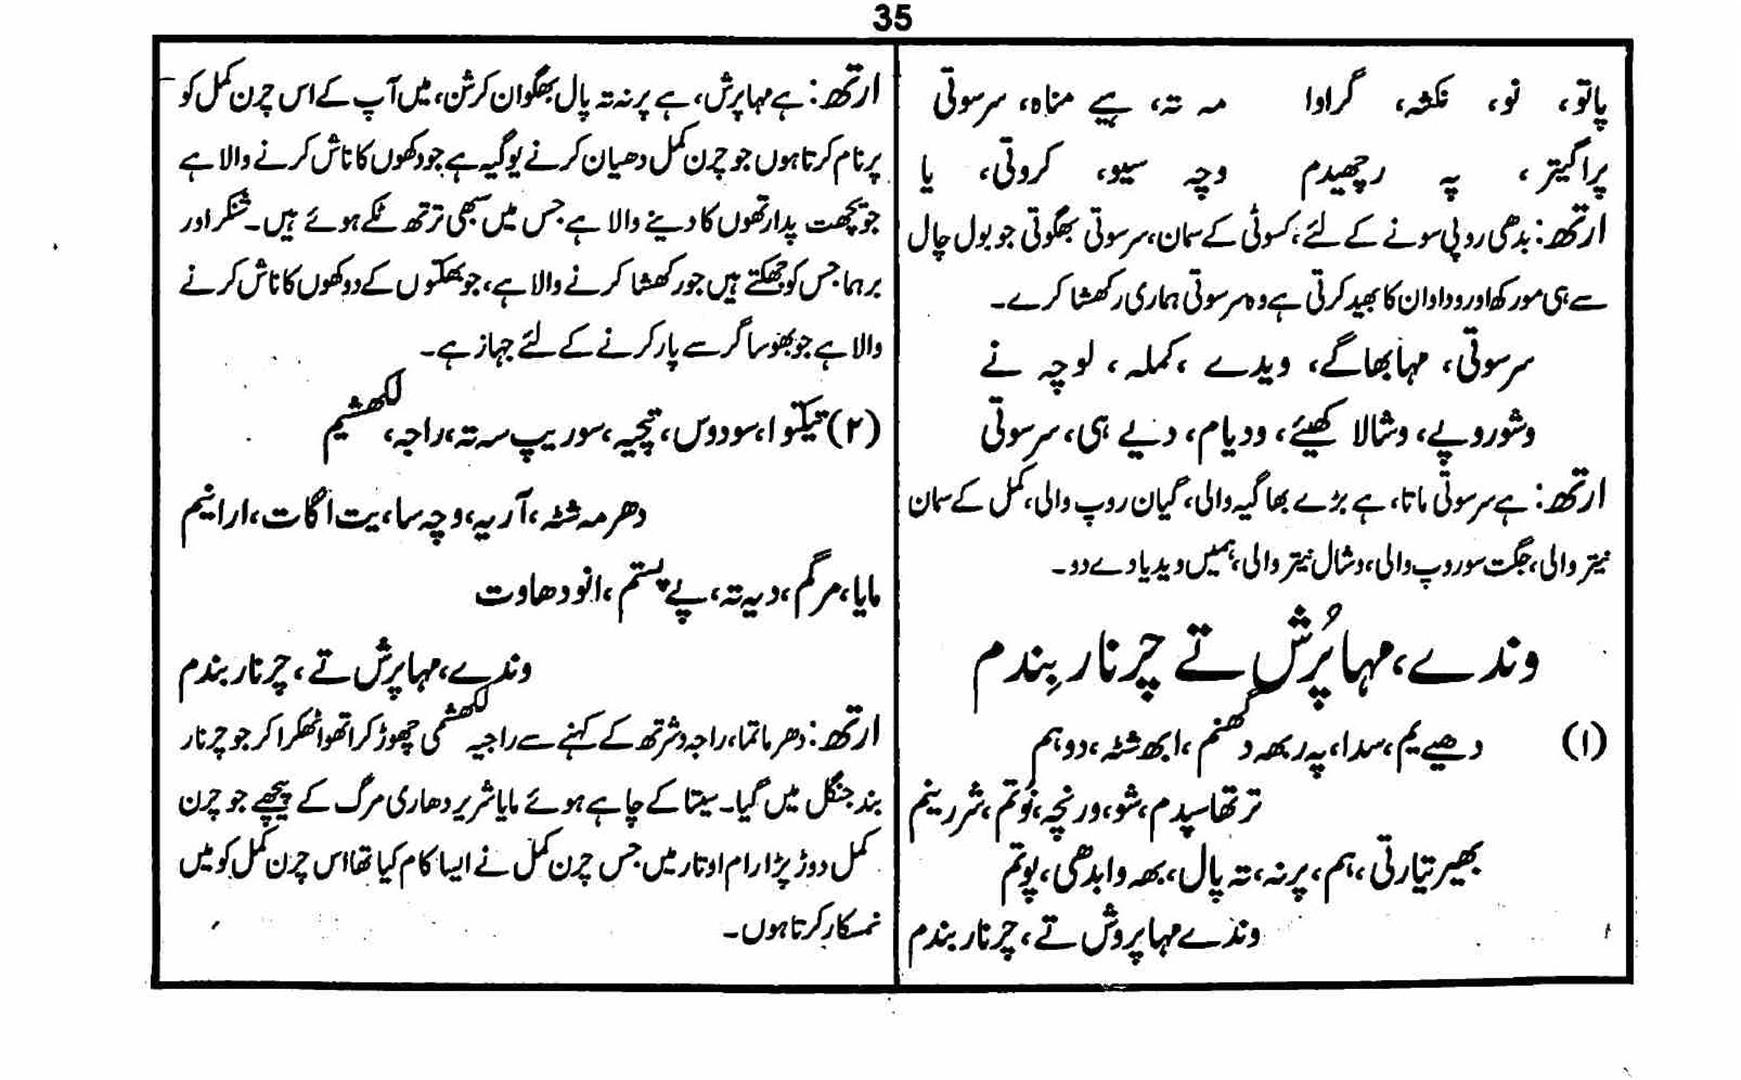 35
پاتو، نو، نکشہ، گراوا مہ تہ، ہیے مناہ، سرسوتی
پراگیتر، پہ رچھیدم وچہ سیو، کروتی، یا
ارتھ: بدھی روپی سونے کے لئے، کسوٹی کے سمان، سرسوتی بھگوتی جو بول چال
سے ہی مورکھ اور وداوان کا بھید کرتی ہے وہ سرسوتی ہماری رکھشا کرے۔
سرسوتی، مہابھاگے، ویدے، کملہ، لوچہ نے
وشوروپے، وشالا کھیئے، ودیام، دیے ہی، سرسوتی
ارتھ: ہے سرسوتی ماتا، ہے بڑے بھاگیہ والی، گیان روپ والی، کمل کے سمان
نیتر والی، جگت سوروپ والی، وشال نیتر والی، ہمیں ویدیا دے دو۔
وندے، مہا پُرش تے چرنار بِندم
(۱) دھیے یم، سدا، پہ ربھہ دگھنم، ابھ شٹہ، دوہم
ترتھاسپدم، شو، ورنچہ، نُوتم، شررینم
بھیرتیارتی، ہم، پرنہ، تہ پال، بھہ وابدھی، پوتم
وندے مہا پروش تے، چرنار بندم
ارتھ: ہے مہا پرش، ہے پرنہ تہ پال بھگوان کرشن، میں آپ کے اس چرن کمل کو
پرنام کرتا ہوں جو چرن کمل دھیان کرنے یوگیہ ہے جو دکھوں کا ناش کرنے والا ہے
جو یچھت پدارتھوں کا دینے والا ہے جس میں سبھی ترتھ ٹکے ہوئے ہیں۔ شنکر اور
برہما جس کو جھکتے ہیں جو رکھشا کرنے والا ہے، جو بھکتوں کے دوکھوں کا ناش کرنے
والا ہے جو بھوساگر سے پار کرنے کے لئے جہاز ہے۔
(۲) تیکتوا، سودوس، تیجیہ، سوریپ سہ تہ، راجہ، لکھشیم
دھرمہ شٹہ، آریہ، وچہ سا، یت اگات، ارانیم
مایا، مرگم، دیہ تہ، پے پستم، انودھاوت
وندے، مہا پرش تے، چرنار بندم
ارتھ: دھرماتما، راجہ دشرتھ کے کہنے سے راجیہ لکھشمی چھوڑ کر اتھوا ٹھکرا کر جو چرنار
بند جنگل میں گیا۔ سیتا کے چاہے ہوئے مایا شریر دھاری مرگ کے پیچھے جو چرن
کمل دوڑ پڑا رام اوتار میں جس چرن کمل نے ایسا کام کیا تھا اس چرن کمل کو میں
نمسکار کرتا ہوں۔